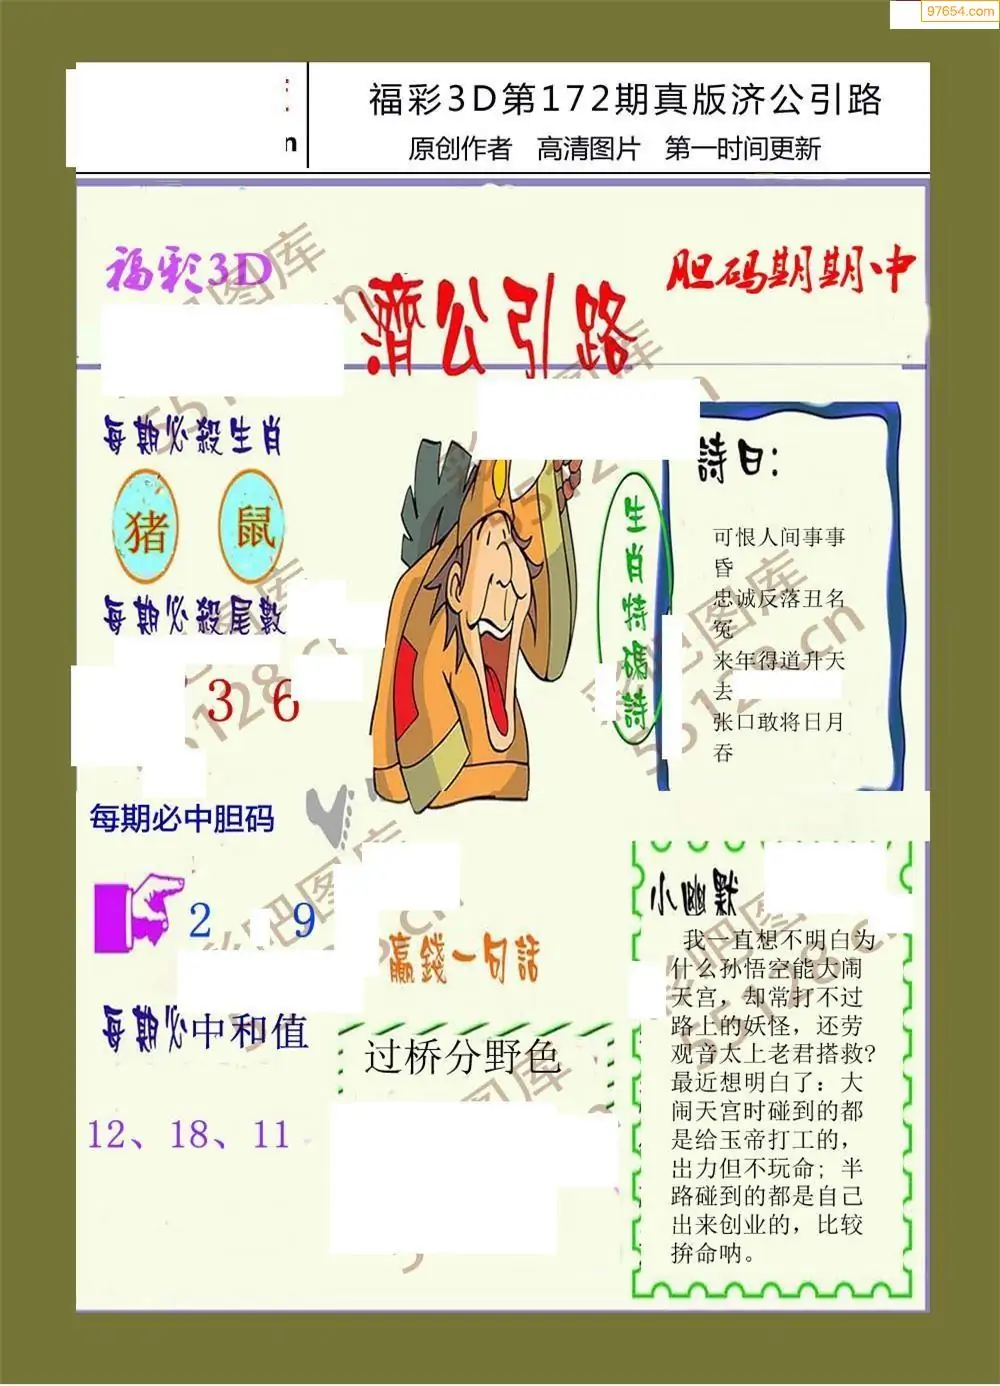 97654.com
福彩3D第172期真版济公引路
原创作者 高清图片 第一时间更新
福彩3D
胆码期期中
濟公引路
每期必殺生肖
猪 鼠
每期必殺尾數
3 6
每期必中胆码
2 9
每期必中和值
12、18、11
生肖特碼詩
詩曰:
可恨人间事事
昏
忠诚反落丑名
冤
来年得道升天
去
张口敢将日月
吞
赢錢一句話
过桥分野色
小幽默
我一直想不明白为
什么孙悟空能大闹
天宫，却常打不过
路上的妖怪，还劳
观音太上老君搭救?
最近想明白了：大
闹天宫时碰到的都
是给玉帝打工的，
出力但不玩命；半
路碰到的都是自己
出来创业的，比较
拚命呐。
彩吧图库
55128.cn